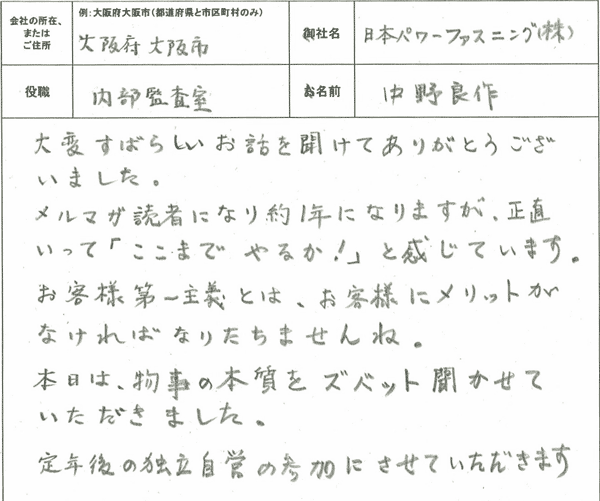 会社の所在、またはご住所
例：大阪府大阪市（都道府県と市区町村のみ）
大阪府大阪市
御社名
日本パワーファスニング(株)
役職
内部監査室
お名前
中野良作
大変すばらしいお話を聞けてありがとうござ
いました。
メルマガ読者になり約1年になりますが、正直
いって「ここまで やるか!」と感じています。
お客様第一主義とは、お客様にメリットが
なければなりたちませんね。
本日は、物事の本質をズバット聞かせて
いただきました。
定年後の独立自営の参加にさせていただきます